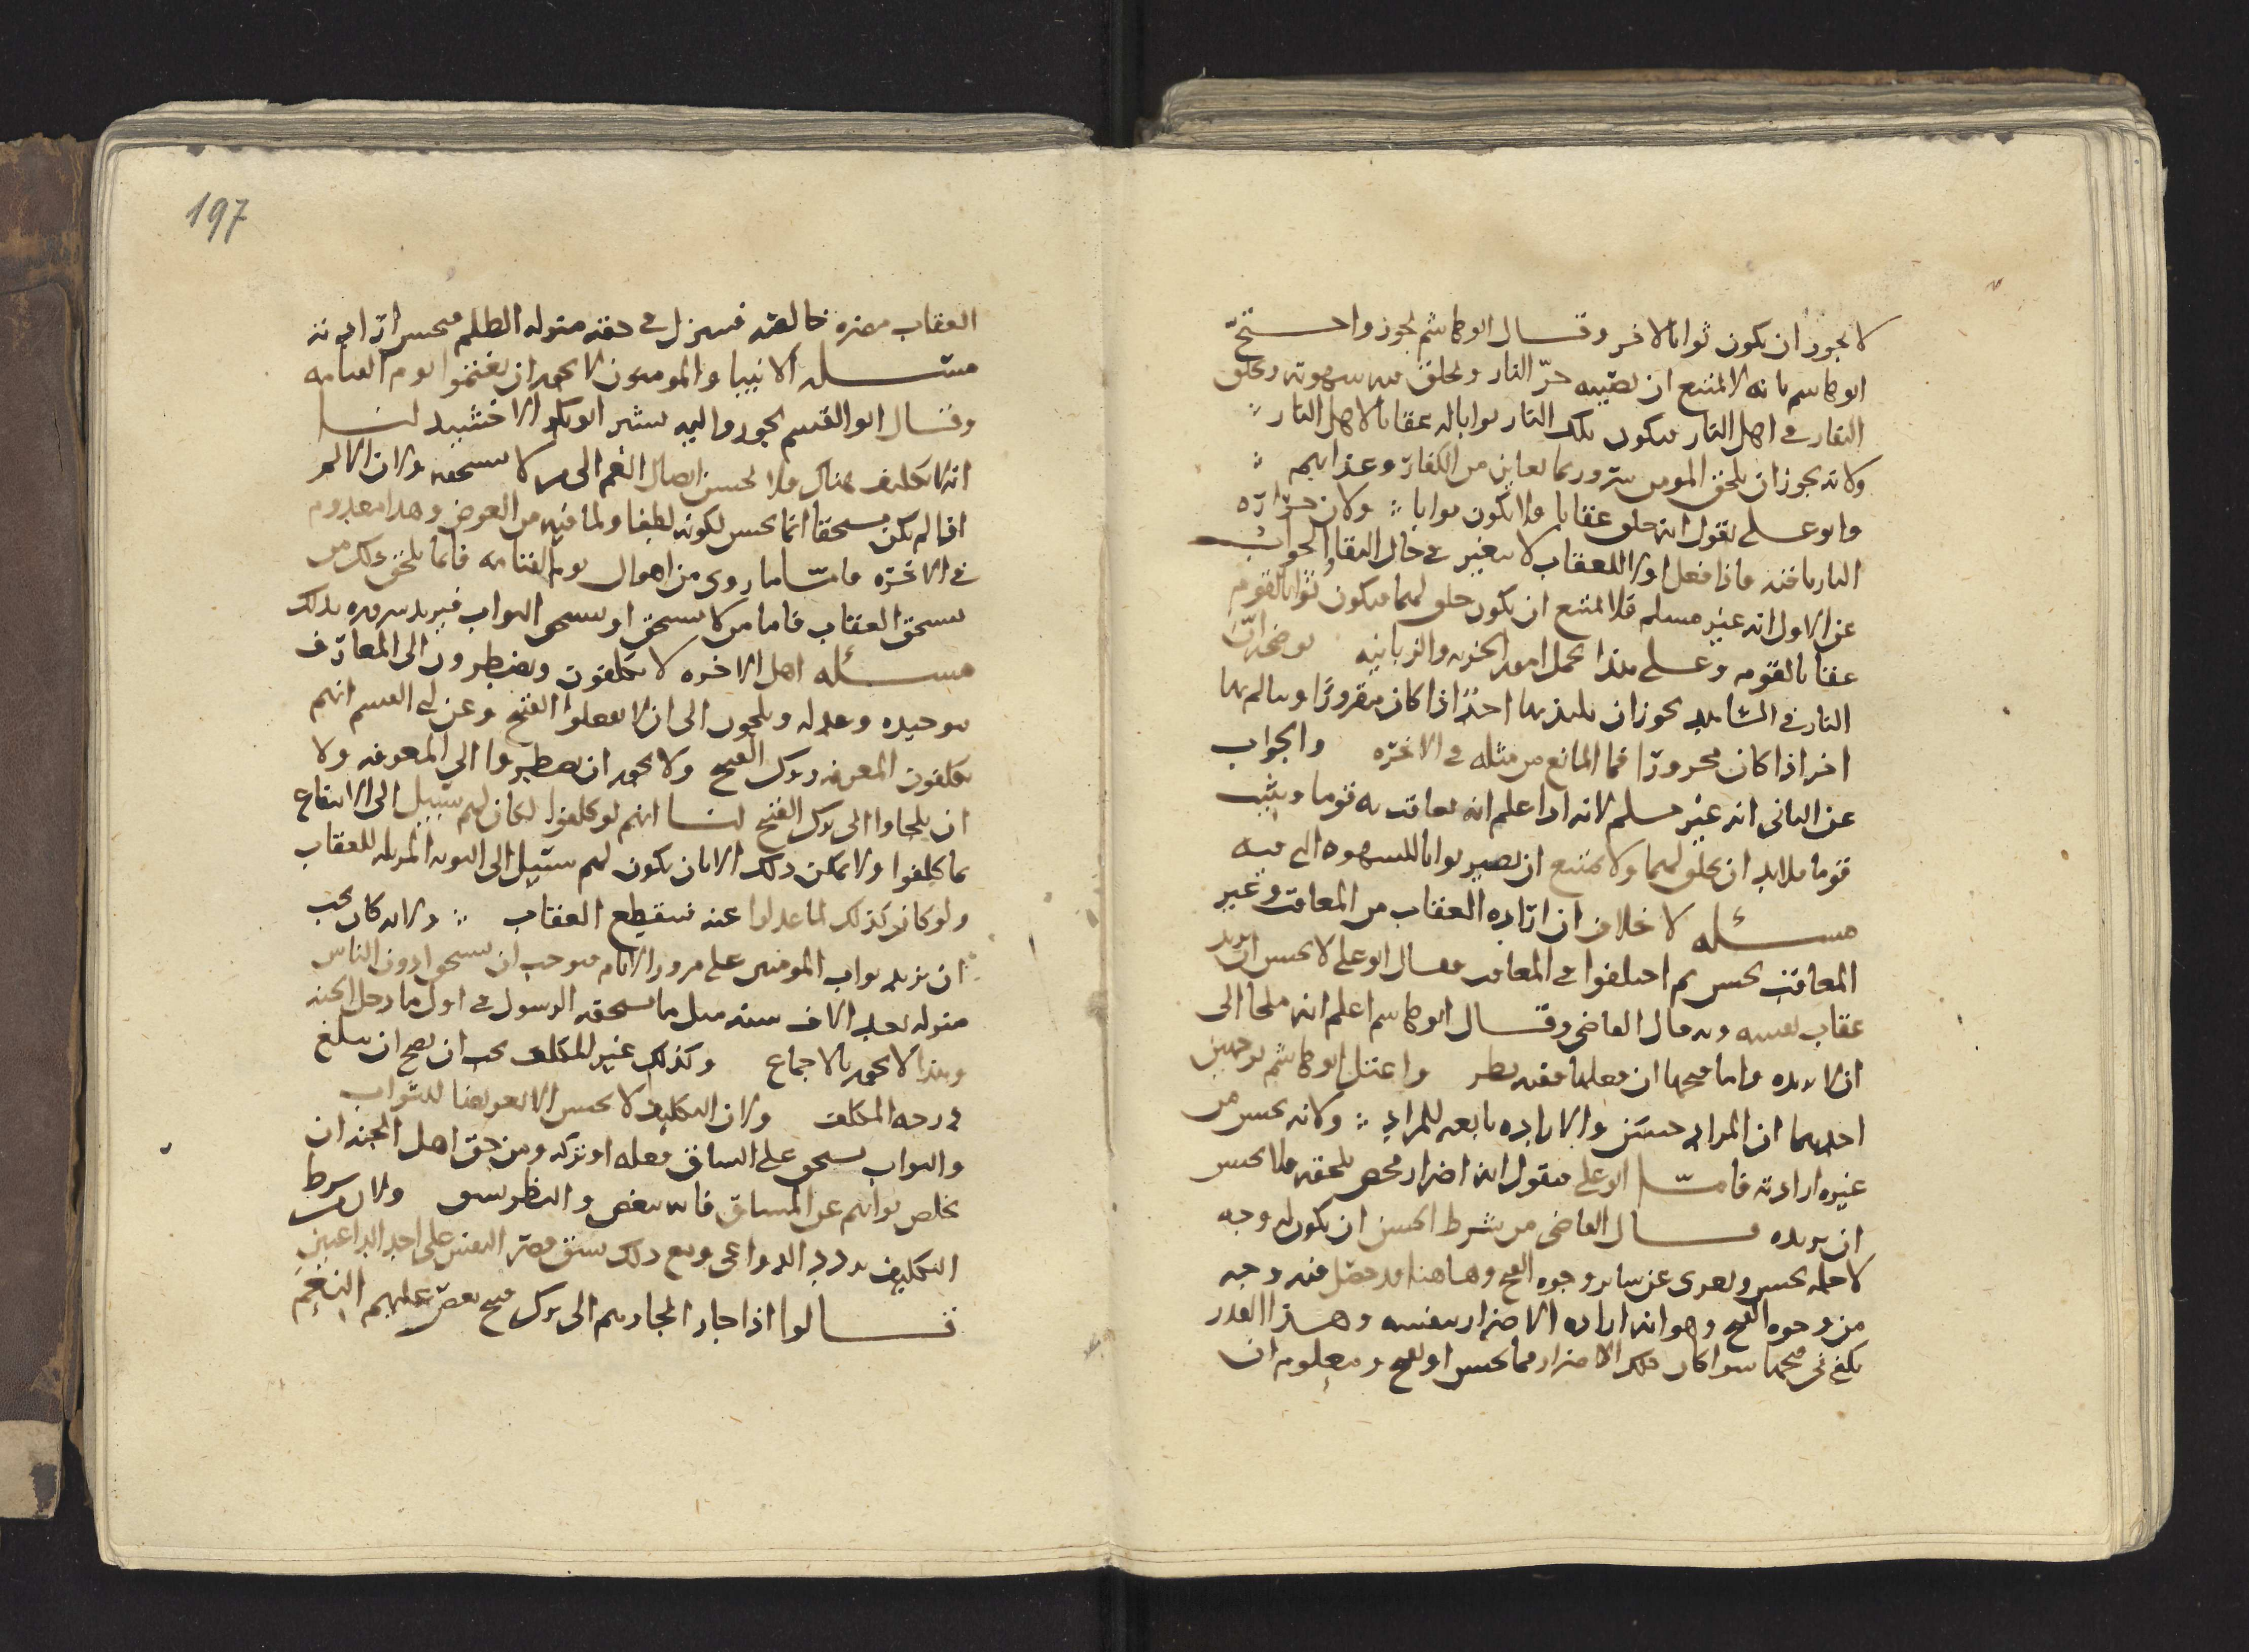 لا يجوز ان يكون ثوابا لاخر وقال ابو هاشم يجوز واحتج
ابو هاشم بانه لا يمتنع ان تصيبه حرّ النار ويخلق فيه شهوته ويخلق
النفار في اهل النار فيكون تلك النار ثوابا له عقابا لاهل النار
ولانه يجوز ان يلحق المومن سرور بما يعاين من الكفار وعذابهم
وابو علي يقول انه خلق عقابا فلا يكون ثوابا ولان حرارة
النار نافذه فاذا فعل اولا للعقاب لا يتغير في حال البقا والجواب
عن الاول انه غير مسلم فلا يمتنع ان يكون خلق لهما فيكون ثوابا لقوم
عقابا لقوم وعلى هذا يحمل امور الخزنه والزبانيه يوضحه انّ
النار في الشاهد يجوز ان يلتذ بها احدٌ اذا كان مقرورًا ويتالم بها
اخر اذا كان محرورًا فما المانع من مثله في الاخره والجواب
عن الثاني انه غير مسلم لانه اذا علم انه يعاقب به قوما ويثيب
قوما فلا بد ان يخلق لهما ولا يمتنع ان يصير ثوابا للشهوه التي فيه
مسئله لا خلاف ان ارادة العقاب من المعاقب وغير
المعاقب يحسن ثم اختلفوا في المعاقب فقال ابو علي لا يحسن ان يريد
عقاب نفسه وبه قال القاضي وقال ابو هاشم اعلم انه ملجا الى
ان لا يريده واما قبحها ان فعلها ففيه نظر واعتل ابو هاشم بوجهين
احدهما ان المراد حسن والاراده تابعه للمراد ولانه يحسن من
غيره ارادته فامّا ابو علي فيقول انه اضرار محض يلحقه فلا يحسن
ان يريده قال القاضي من شرط الحسن ان يكون له وجه
لاجله يحسن ويعرى عن ساير وجوه القبح وهاهنا قد حصل فيه وجه
من وجوه القبح وهو انه اراده الاضرار بنفسه وهذا القدر
يكفي في قبحها سوا كان ذلك الاضرار مما يحسن او يقبح ومعلوم ان
197
العقاب مضره خالصه فينزل في حقه منزله الظلم فيحسن ارادته
مسئله الانبيا والمومنون لا يجوز ان يغتموا يوم القيامه
وقال ابو القسم يجوز واليه يشير ابو بكر الاخشيد لنا
انه لا تكليف هناك فلا يحسن ايصال الغم الى من لا يستحقه ولان الالم
اذا لم يكن مستحقا انما يحسن لكونه لطفا ولما فيه من العوض وهذا معدوم
في الاخره فامّا ما روي من اهوال يوم القيامه فانما يلحق ذلك من
يستحق العقاب فاما من لا يستحق او يستحق الثواب فيزيد سروره بذلك
مسئله اهل الاخره لا يكلفون ويضطرون الى المعارف
بتوحيده وعدله ويلجون الى ان لا يفعلوا القبيح وعن ابي القسم انهم
يكلفون المعرفه وترك القبيح ولا يجوز ان يضطروا الى المعرفه ولا
ان يلجاوا الى ترك القبيح لنا انهم لو كلفوا لكان لهم سبيل الى الانتفاع
بما كلفوا ولا يمكن ذلك الا بان يكون لهم سبيل الى التوبه المزيله للعقاب
ولو كان كذلك لما عدلوا عنه فينقطع العقاب ولانه كان يجب
ان يزيد ثواب المومنين على مرور الايام فيوجب ان يستحق ادون الناس
منزله بعد الاف سنه مثل ما يستحقه الرسول في اول ما دخل الجنه
وهذا لا يجوز بالاجماع وكذلك غير المكلف يجب ان يصح ان يبلغ
درجه المكلف ولان التكليف لا يحسن الا تعريضا للثواب
والثواب يستحق على الشاق فعله او تركه ومن حق اهل الجنه ان
يخلص ثوابهم عن المشاق فانه ينغص والنظر يشق ولان شرط
التكليف تردد الدواعي ومع ذلك يشق قصر النفس على احد الداعيين
قالوا اذا جاز الجاوهم الى ترك قبيح ينغص عليهم النعم